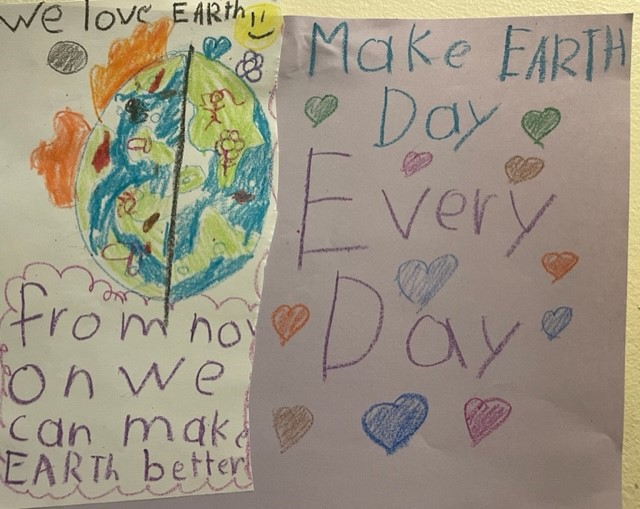 We love EARTH
from now
on we
can make
EARTH better
Make EARTH
Day
Every
Day